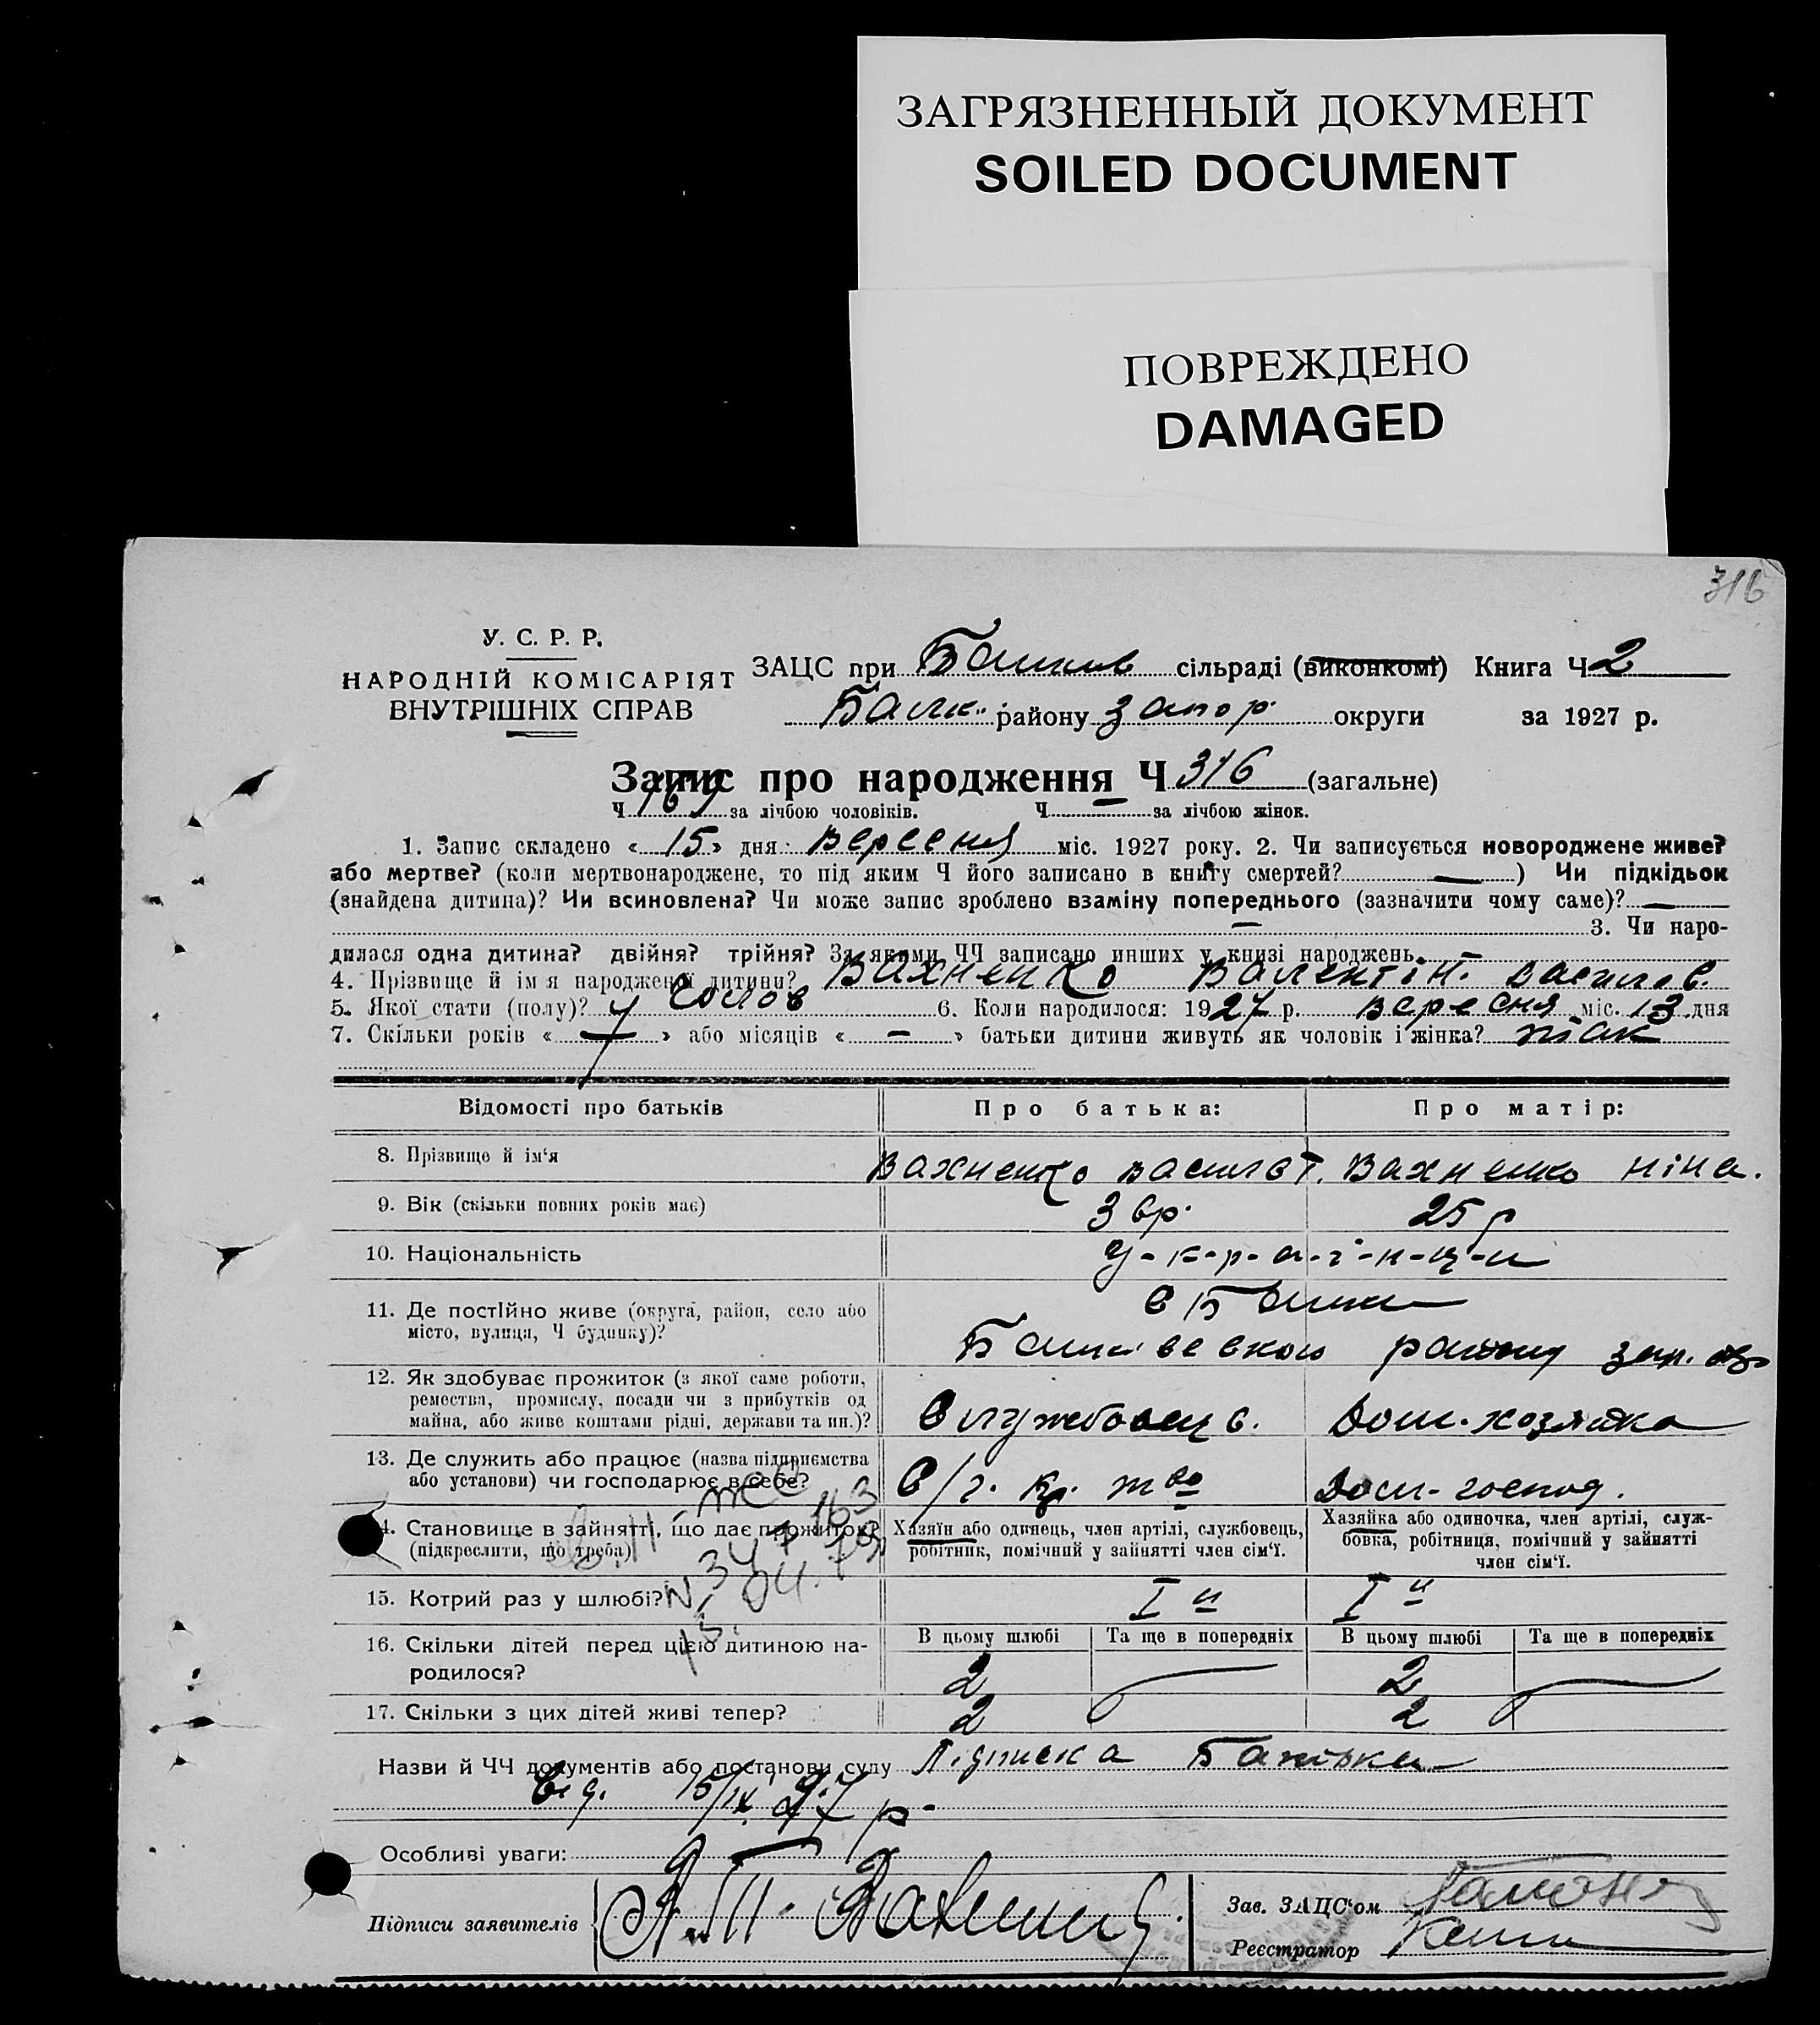 ЗАГРЯЗНЕННЫЙ ДОКУМЕНТ
SOILED DOCUMENT
ПОВРЕЖДЕНО
DAMAGED
316
У. С. Р. Р.
НАРОДНІЙ КОМІСАРІЯТ
ВНУТРІШНІХ СПРАВ
ЗАЦС при сільраді (виконкомі) Книга Ч 2
району Запор. округи за 1927 р.
Запис про народження Ч 316 (загальне)
Ч за лічбою чоловіків. Ч — за лічбою жінок.
1. Запис складено « 15 » дня Вересня міс. 1927 року. 2. Чи записується новороджене живе?
або мертве? (коли мертвонароджене, то під яким Ч його записано в книгу смертей? — ) Чи підкідьок
(знайдена дитина)? Чи всиновлена? Чи може запис зроблено взаміну попереднього (зазначити чому саме)? —
— 3. Чи наро-
дилася одна дитина? двійня? трійня? За якими ЧЧ записано инших у книзі народжень
4. Прізвище й ім'я народженої дитини? Вахненко Валентін. Васильов.
5. Якої стати (полу)? Чолов 6. Коли народилося: 1927 р. Вересня міс. 13 дня
7. Скільки років « — » або місяців « — » батьки дитини живуть як чоловік і жінка? так
Відомості про батьків Про батька: Про матір:
8. Прізвище й ім'я Вахненко Васил Вахненко Ніна.
9. Вік (скільки повних років має) 25 р
10. Національність У-к-р-а-ї-н-ц-и
11. Де постійно живе (округа, район, село або
місто, вулиця, Ч будинку)?
району
12. Як здобуває прожиток (з якої саме роботи,
ремества, промислу, посади чи з прибутків од
майна, або живе коштами рідні, держави та ин.)? Службовец Дом. хозяйка
13. Де служить або працює (назва підприємства
або установи) чи господарює в себе? С/г. кр. т-во Дом. господ.
14. Становище в зайнятті, що дає прожиток?
(підкреслити, що треба)
Хазяїн або одинець, член артілі, службовець,
робітник, помічний у зайнятті член сім'ї.
Хазяйка або одиночка, член артілі, служ-
бовка, робітниця, помічний у зайнятті
член сім'ї.
15. Котрий раз у шлюбі? I й I й
16. Скільки дітей перед цією дитиною на-
родилося?
В цьому шлюбі Та ще в попередніх В цьому шлюбі Та ще в попередніх
2 — 2 —
17. Скільки з цих дітей живі тепер? 2 2
Назви й ЧЧ документів або постанови суду Підписка Батька
від. 15/IX 27 р.
Особливі уваги: —
Підписи заявителів
Зав. ЗАЦС'ом
Реєстратор